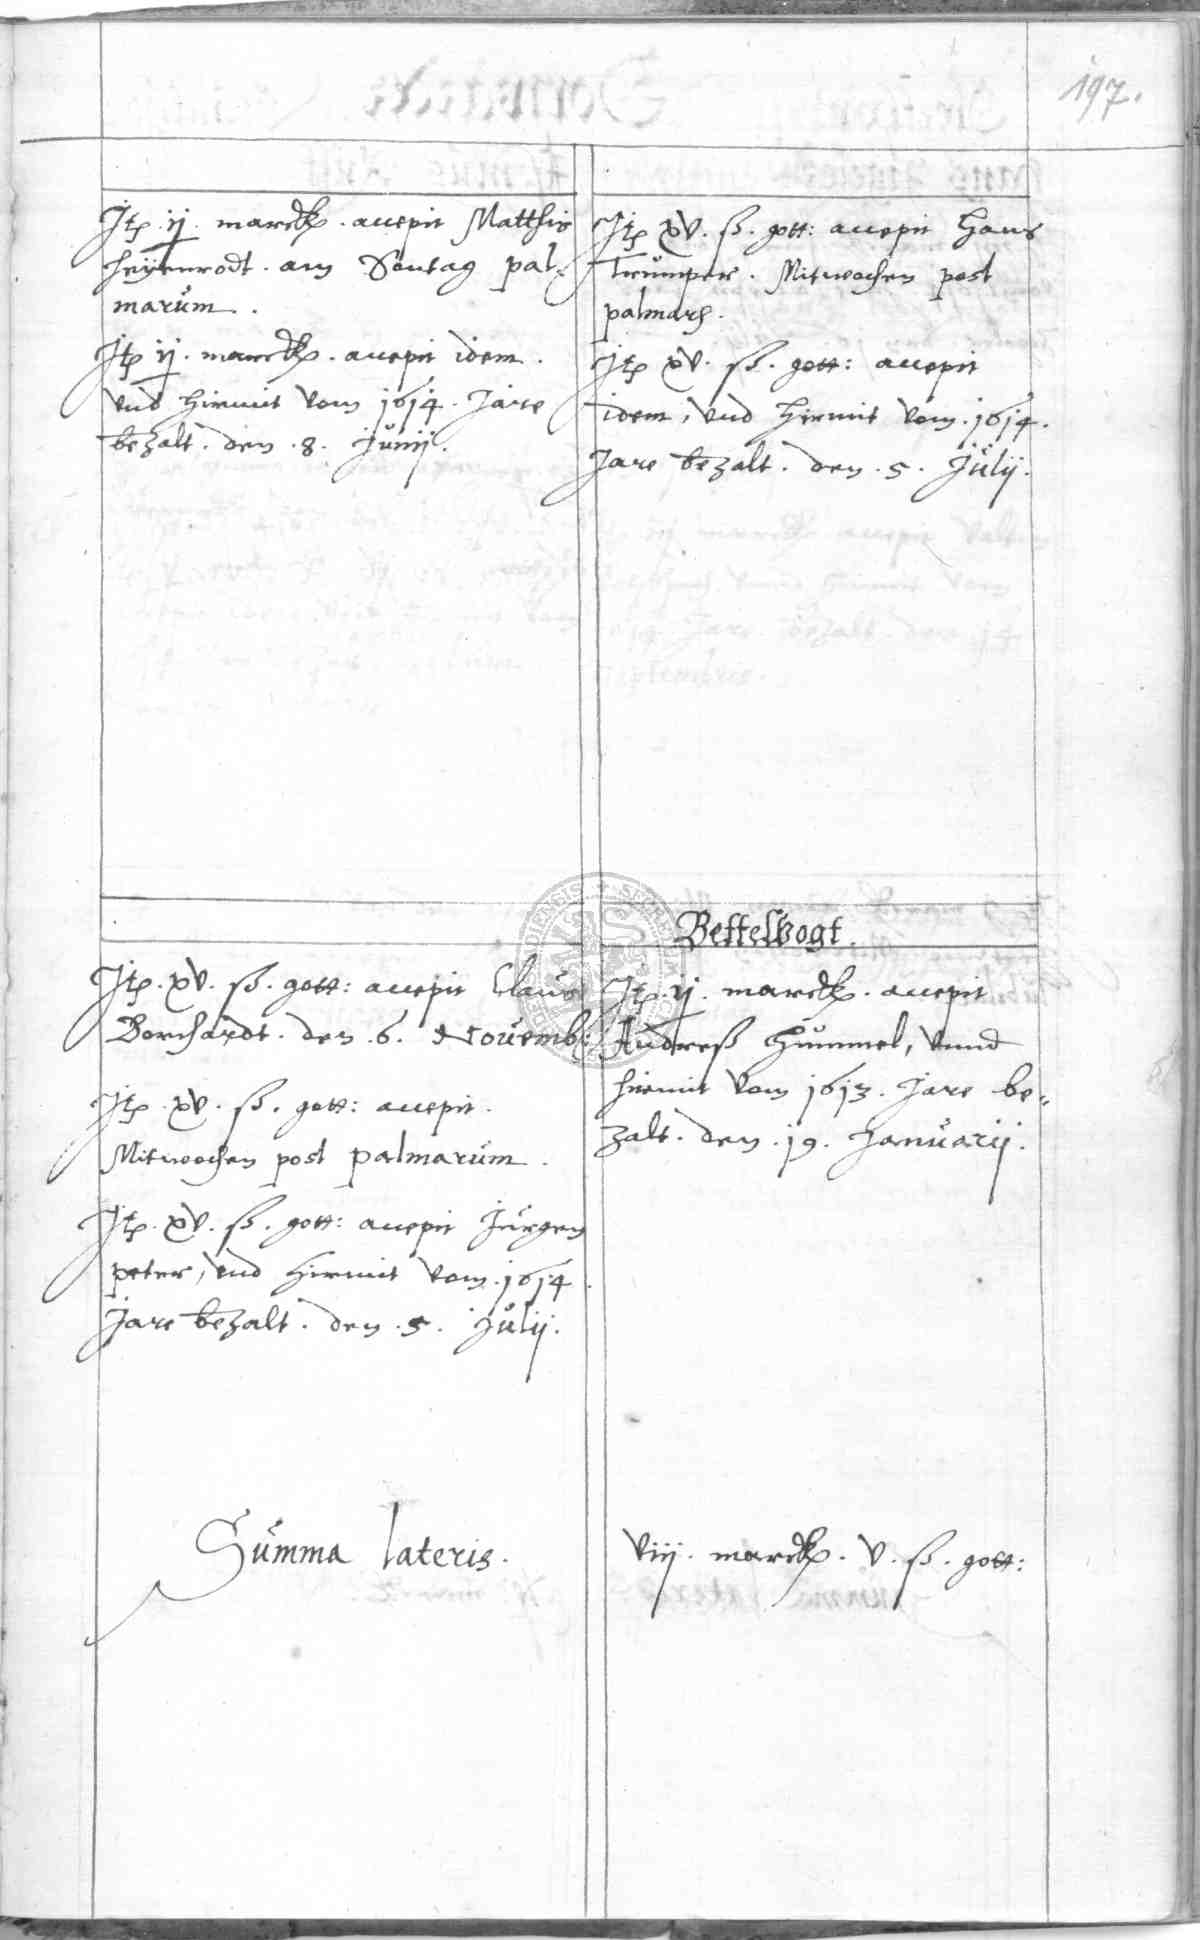 197.
Itē. ij. marck. accepit Matthis
Heyenrodt. am Sontag pal-
marum.
Itē ij. marck. accepit idem.
vnd hirmit vom 1614. Jare
bezalt. den. 8. Junij.
Itē xv. ß. gott: accepit Hans
Trumper. Mitwochen post
palmarū.
Itē xv. ß. gott: accepit
idem, vnd hirmit vom. 1614.
Jare bezalt. den. 5. Julij.
Itē. xv. ß. gott: accepit Claus
Borchardt. den. 6. Novemb:
Itē. xv. ß. gott: accepit.
Mitwochen post palmarum.
Itē. xv. ß. gott: accepit Jurgen
peter, vnd hirmit vom. 1614.
Jare bezalt. den. 5. Julij.
Bettelvogt.
Itē. ij. marck. accepit
Andreß Hummel, vnnd
hirmit vom 1613. Jare be-
zalt. den. 19. Januarij.
Summa lateris.
viij. marck. v. ß. gott: